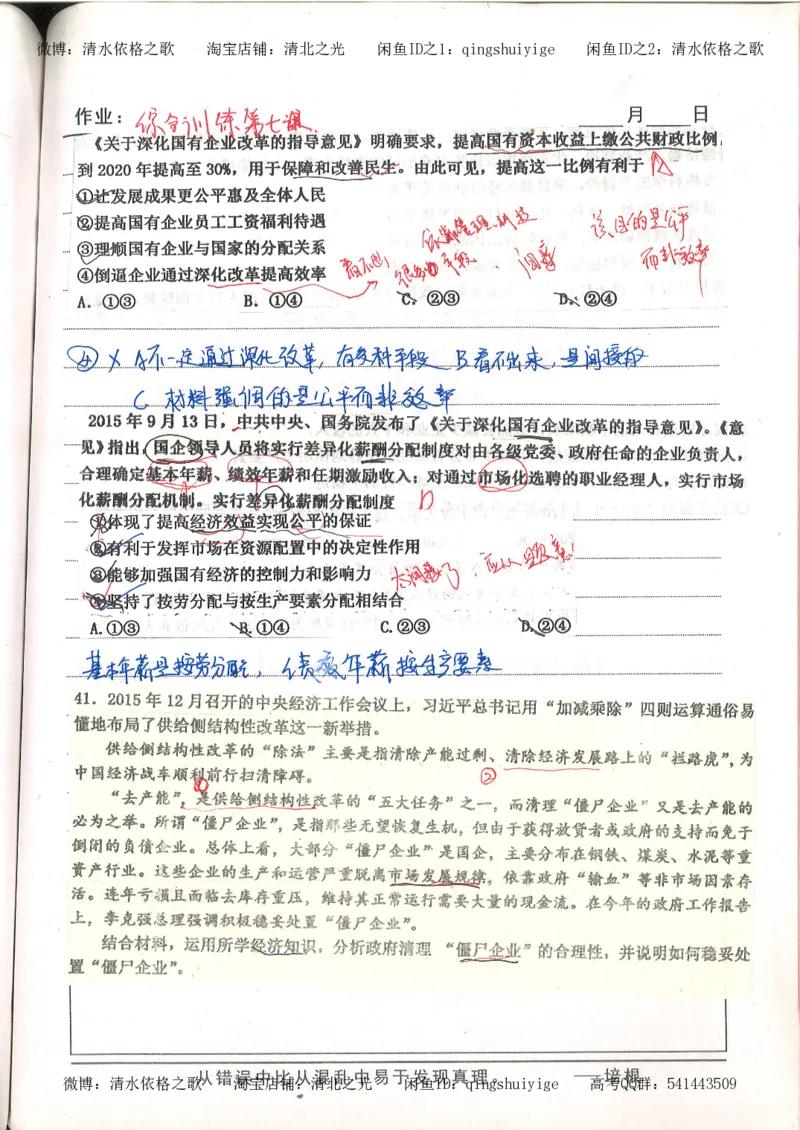 微博：清水依格之歌 淘宝店铺：清北之光 闲鱼ID之1：qingshuiyige 闲鱼ID之2：清水依格之歌
作业：综合训练第七课 月 日
《关于深化国有企业改革的指导意见》明确要求，提高国有资本收益上缴公共财政比例，
到 2020 年提高至 30%，用于保障和改善民生。由此可见，提高这一比例有利于 A
①让发展成果更公平惠及全体人民
②提高国有企业员工工资福利待遇
③理顺国有企业与国家的分配关系
④倒逼企业通过深化改革提高效率
看不出
依靠管理、科技
很多手段
该目的是公平
而非效率
A. ①③ B. ①④ C. ②③ D. ②④
④ X A不一定通过深化改革，有多种手段 B看不出来，是间接的
C 材料强调的是公平而非效率
2015 年 9 月 13 日，中共中央、国务院发布了《关于深化国有企业改革的指导意见》。《意
见》指出，国企领导人员将实行差异化薪酬分配制度对由各级党委、政府任命的企业负责人，
合理确定基本年薪、绩效年薪和任期激励收入；对通过市场化选聘的职业经理人，实行市场
化薪酬分配机制。实行差异化薪酬分配制度 D
①体现了提高经济效益实现公平的保证
②有利于发挥市场在资源配置中的决定性作用
③能够加强国有经济的控制力和影响力
④坚持了按劳分配与按生产要素分配相结合
A.①③ B.①④ C.②③ D.②④
基本年薪是按劳分配，绩效年薪按生产要素
41．2015 年 12 月召开的中央经济工作会议上，习近平总书记用“加减乘除”四则运算通俗易
懂地布局了供给侧结构性改革这一新举措。
供给侧结构性改革的“除法”主要是指清除产能过剩、清除经济发展路上的“拦路虎”，为
中国经济战车顺利前行扫清障碍。
① ②
“去产能”，是供给侧结构性改革的“五大任务”之一，而清理“僵尸企业”又是去产能的
必为之举。所谓“僵尸企业”，是指那些无望恢复生机，但由于获得放贷者或政府的支持而免于
倒闭的负债企业。总体上看，大部分“僵尸企业”是国企，主要分布在钢铁、煤炭、水泥等重
资产行业。这些企业的生产和运营严重脱离市场发展规律，依靠政府“输血”等非市场因素存
活。连年亏损且面临去库存重压，维持其正常运行需要大量的现金流。在今年的政府工作报告
上，李克强总理强调积极稳妥处置“僵尸企业”。
结合材料，运用所学经济知识，分析政府清理 “僵尸企业”的合理性，并说明如何稳妥处
置“僵尸企业”。
从错误中比从混乱中易于发现真理。 ——培根
微博：清水依格之歌 淘宝店铺：清北之光 闲鱼ID：qingshuiyige 高考QQ群：541443509